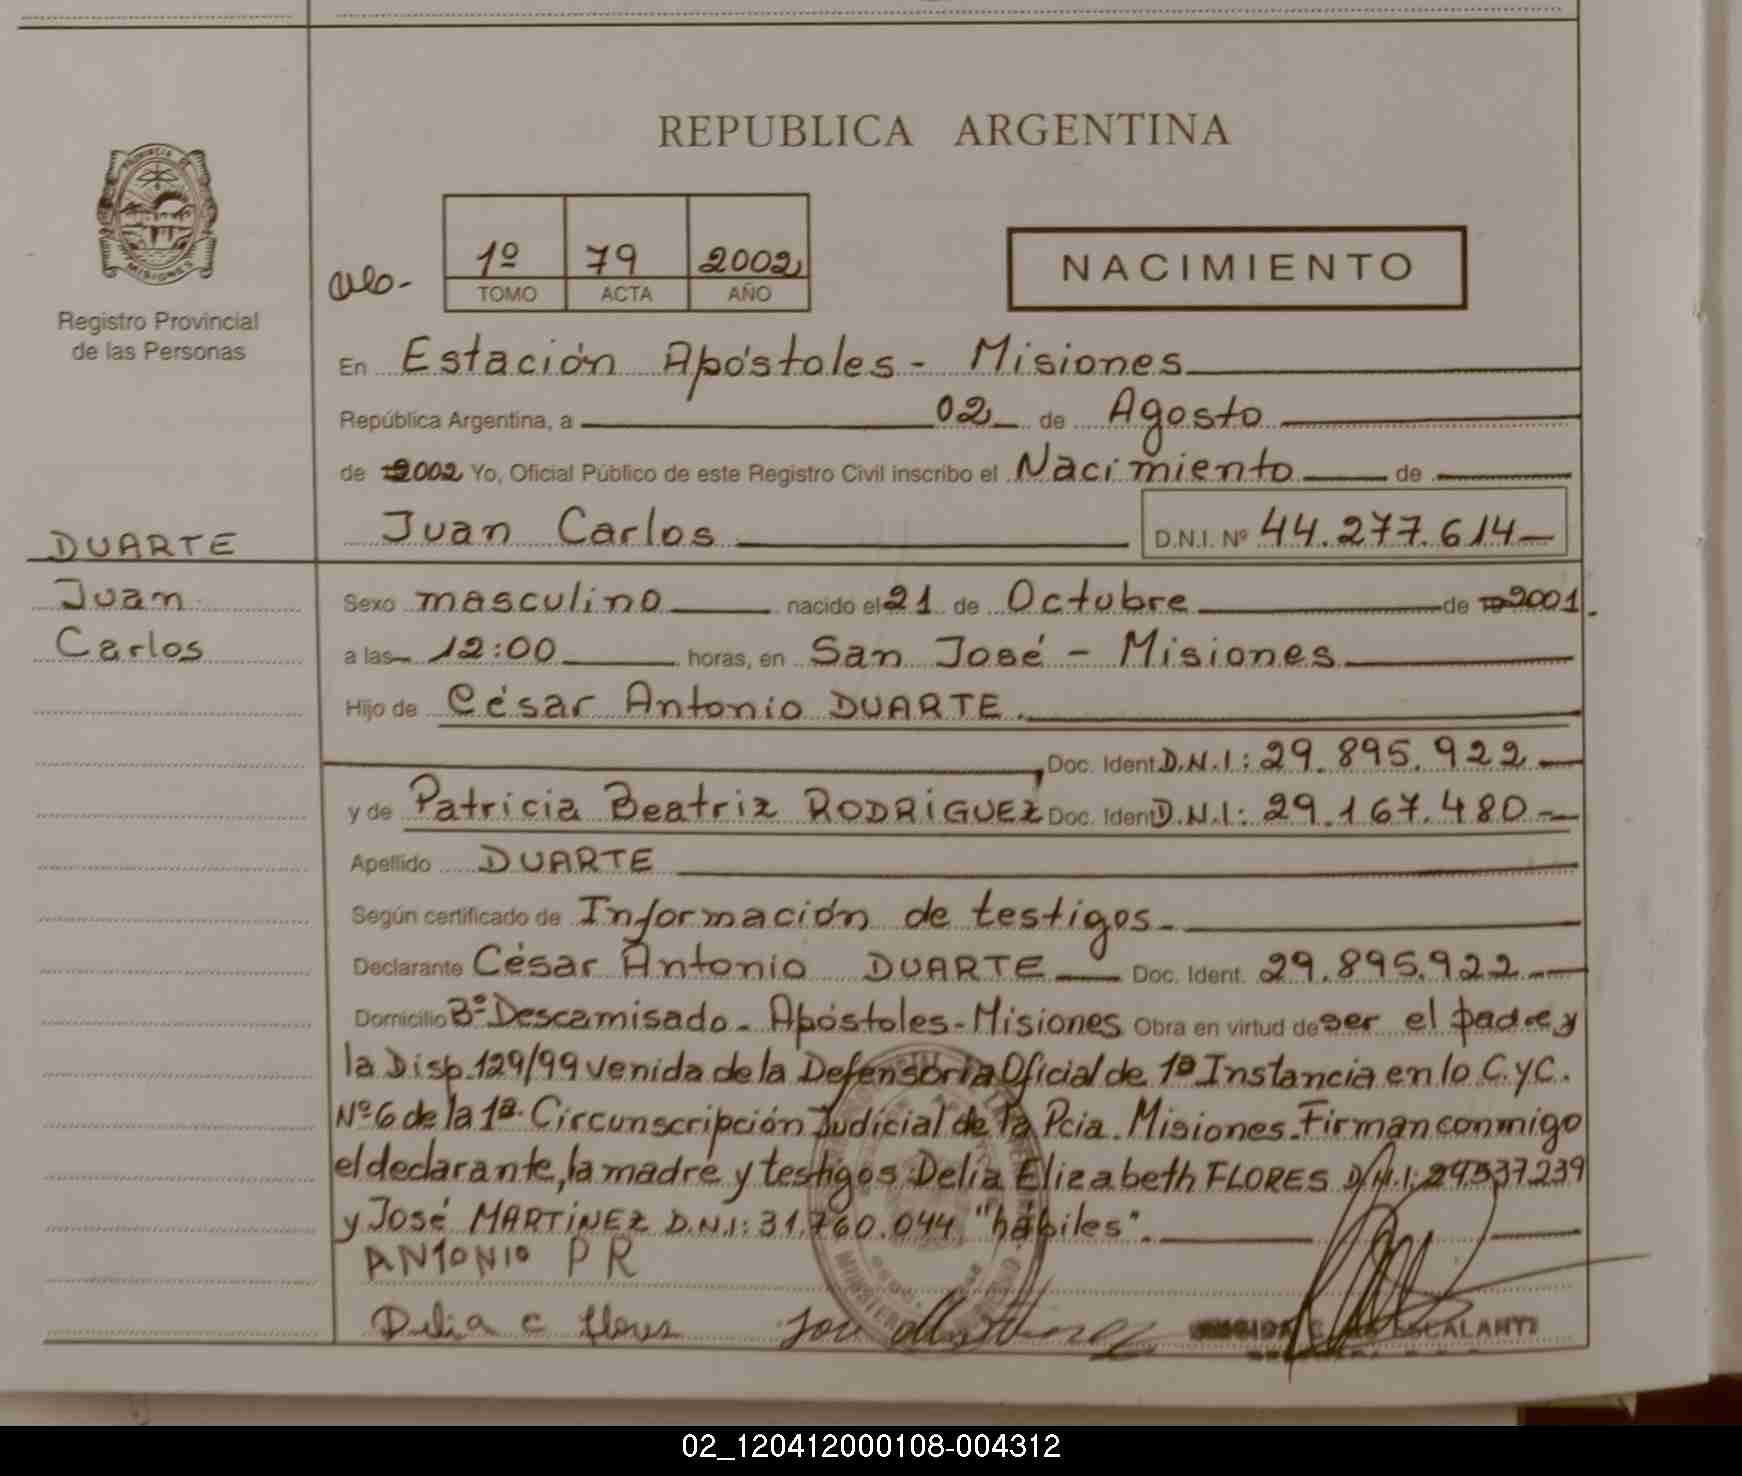 REPUBLICA ARGENTINA
PROVINCIA DE MISIONES
Registro Provincial
de las Personas
1º 79 2002
TOMO ACTA AÑO
NACIMIENTO
En Estación Apóstoles - Misiones
República Argentina, a 02 de Agosto
de 2002 Yo, Oficial Público de este Registro Civil inscribo el Nacimiento de
Juan Carlos D.N.I. Nº 44.277.614
DUARTE
Juan
Carlos
Sexo masculino nacido el 21 de Octubre de 2001.
a las 12:00 horas, en San José - Misiones
Hijo de César Antonio DUARTE.
Doc. Ident D.N.I: 29.895.922
y de Patricia Beatriz RODRíGUEZ, Doc. Ident D.N.I: 29.167.480.-
Apellido DUARTE
Según certificado de Información de testigos.
Declarante César Antonio DUARTE Doc. Ident. 29.895.922
Domicilio Bº Descamisado - Apóstoles - Misiones Obra en virtud de ser el padre y
la Disp. 129/99 venida de la Defensoria Oficial de 1ª Instancia en lo C. y C.
Nº 6 de la 1ª Circunscripción Judicial de la Pcia. Misiones. Firman conmigo
el declarante, la madre y testigos: Delia Elizabeth FLORES D.N.I: 24537239
y José MARTíNEZ D.N.I: 31.760.044 "hábiles".
ANTONIO P R
Delia e flores José Martinez ESCALANTE
02_120412000108-004312